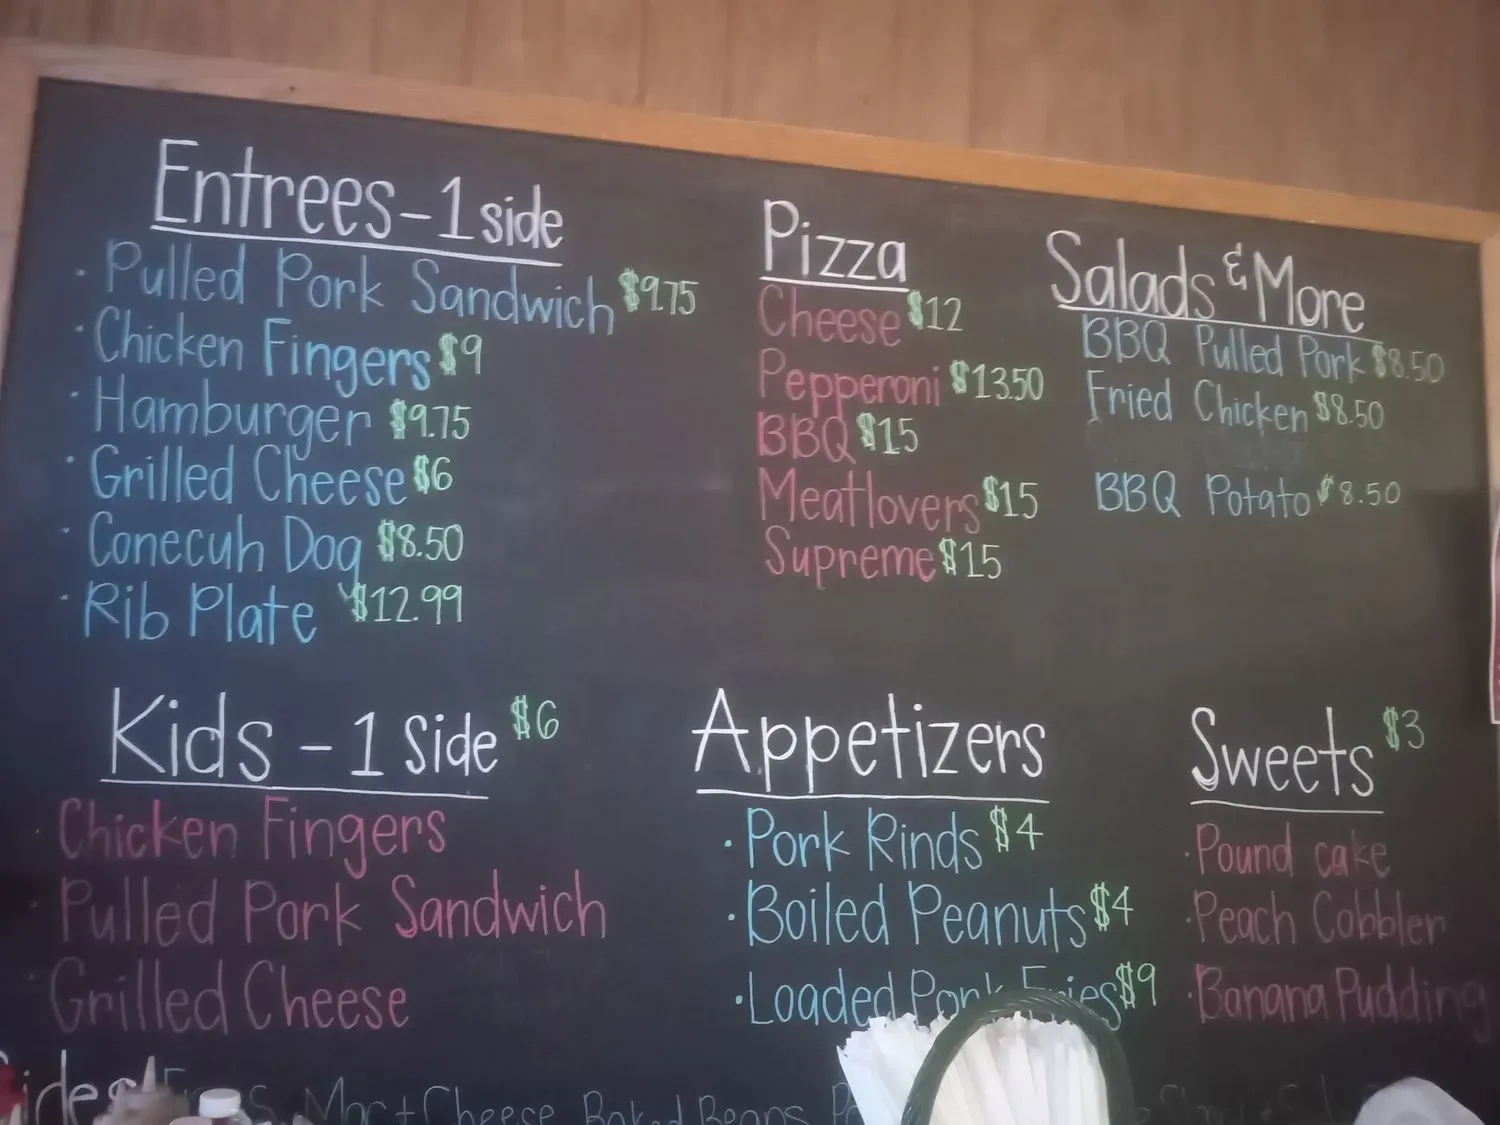 Entrees - 1 side
· Pulled Pork Sandwich $9.75
· Chicken Fingers $9
· Hamburger $9.75
· Grilled Cheese $6
· Conecuh Dog $8.50
· Rib Plate $12.99
Pizza
Cheese $12
Pepperoni $13.50
BBQ $15
Meatlovers $15
Supreme $15
Salads & More
BBQ Pulled Pork $8.50
Fried Chicken $8.50
BBQ Potato $8.50
Kids - 1 Side $6
Chicken Fingers
Pulled Pork Sandwich
Grilled Cheese
Appetizers
· Pork Rinds $4
· Boiled Peanuts $4
· Loaded Pork Fries $9
Sweets $3
· Pound cake
· Peach Cobbler
· Banana Pudding
Mac + Cheese Baked Beans